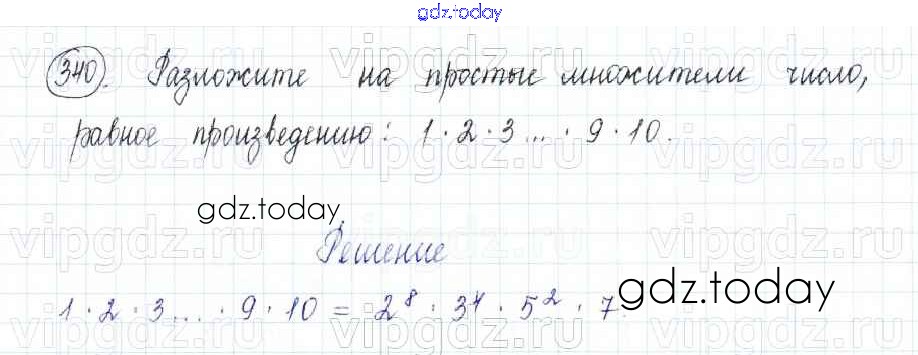 gdz.today
340. Разложите на простые множители число,
равное произведению: 1 · 2 · 3 ... · 9 · 10.
gdz.today
Решение
1 · 2 · 3 ... · 9 · 10 = 2⁸ · 3⁴ · 5² · 7.
gdz.today
vipgdz.ru vipgdz.ru vipgdz.ru